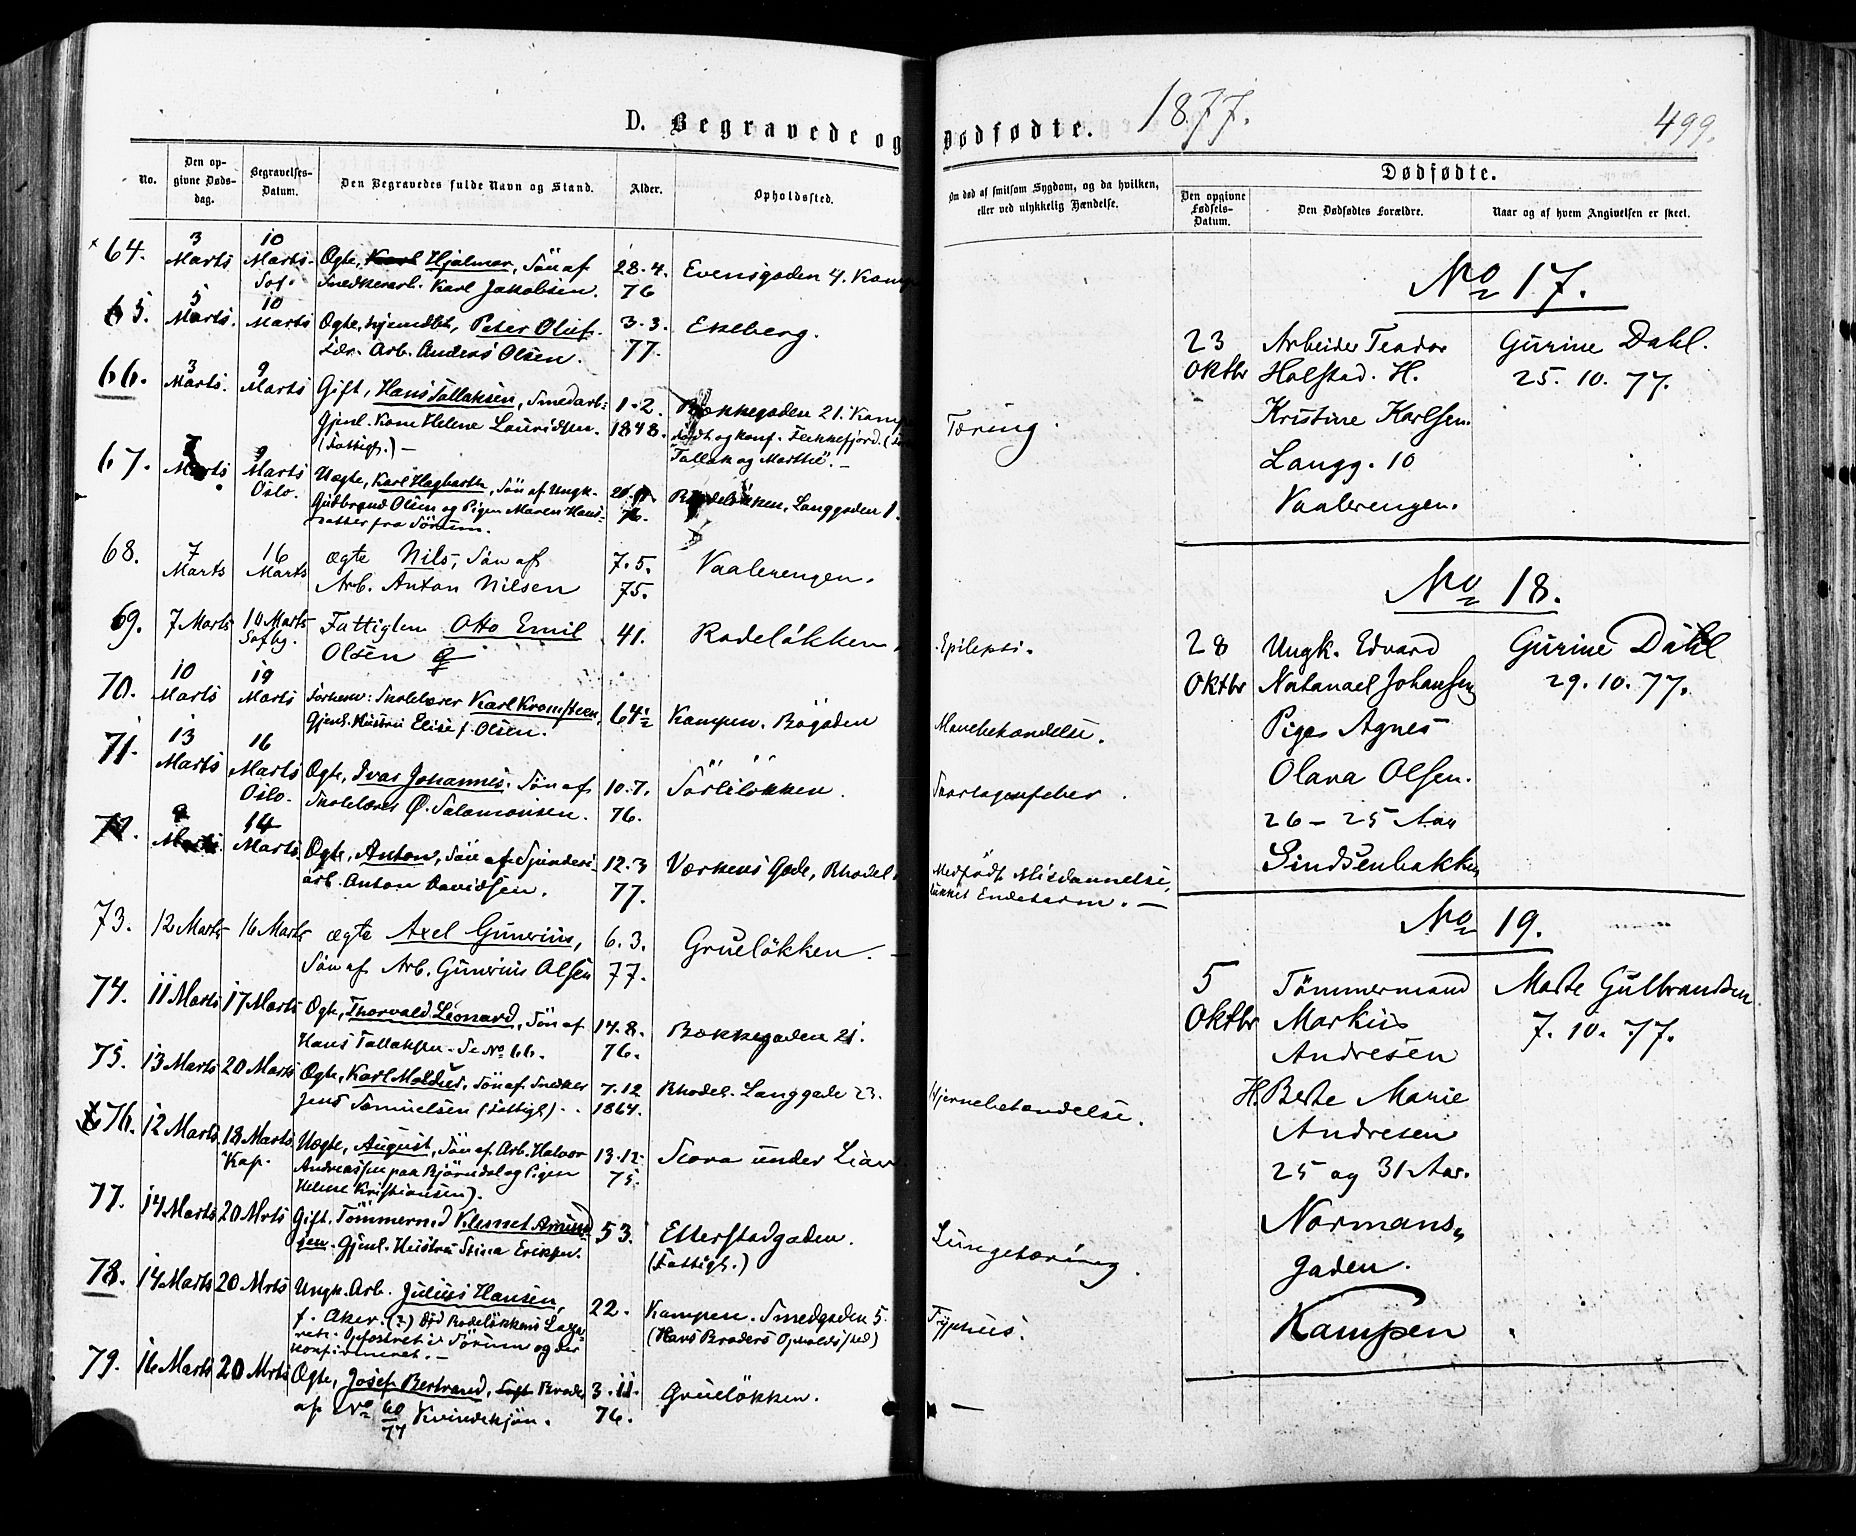 D. Begravede og Dødfødte. 1877.
499.
No.
Den op-
givne Døds-
dag.
Begravelses-
Datum.
Den Begravedes fulde Navn og Stand.
Alder.
Opholdssted.
Om død af smitsom Sygdom, og da hvilken,
eller ved ulykkelig Hændelse.
Dødfødte.
Den opgivne
Fødsels-
Datum.
Den Dødfødtes Forældre.
Naar og af hvem Angivelsen er skeet.
64. 3 Marts 10 Marts. Sof.
Ægte, Karl Hjalmar, Søn af
Snedkerarb. Karl Jakobsen.
28.4.
76
Evensgaden 4. Kamp
65. 5 Marts. 10 Marts
Ægte, hjemdøbt, Peter Oluf.
Arb. Anders Olsen.
3.3.
77.
Ekeberg.
66. 3 Marts. 9 Marts
Gift, Hans Tallaksen, Smedarb.
Gjenl. Kone Helene Lauridsen.
(Fattigl.) —
1.2.
1848.
Bækkegaden 21. Kamp
født og konf. Flekkefjord.
Tallak og Marthe. —
Tæring.
67. Marts 9 Marts Oslo.
Uægte, Karl Hagbarth, Søn af Ungk.
Gudbrand Olsen og Pigen Maren Hans-
datter fra Sørum.
76.
Rodeløkken, Langgaden 1.
68. 7 Marts 16 Marts
ægte Nils, Søn af
Arb. Anton Nilsen
7.5.
75.
Vaalerengen.
69. 7 Marts 10 Marts Sofbg.
Fattiglem Otto Emil
Olsen
41.
Rodeløkken,
Epilepsi.
70. 10 Marts 19 Marts
Forhenv. Skolelærer Karl Kromsteen,
Gjenl. Hustru Elise f. Olsen.
64½
Kampen. Bøgaden
Mavebetændelse.
71. 13 Marts 16 Marts Oslo.
Ægte, Ivar Johannes. Søn af
Skolelærer Ø. Salamonsen.
10.7.
76.
Sörliløkken.
Skarlagensfeber.
72. 9 Marts. 14 Marts
Ægte, Anton, Søn af Spinderi-
arb. Anton Davidsen.
12.3
77.
Værkens Gade, Rhodel.
Medfødt Misdannelse,
lukket Endetarm. —
73. 12 Marts 16 Marts
ægte Axel Gunerius,
Søn af Arb. Gunerius Olsen
6.3.
77.
Grueløkken. —
74. 11 Marts 17 Marts
Ægte, Thorvald Leonard, Søn af
Hans Tallaksen. Se No 66.
14.8.
76.
Bækkegaden 21.
75. 13 Marts 20 Marts
Ægte, Karl Moldus, Søn af Snedker
Jens Samuelsen (Fattigl).
7.12
1864.
Rhodel. Langgade 23.
Hjernebetændelse.
76. 12 Marts 18 Marts. Kap.
Uægte, August, Søn af Arb. Halvor
Andreassen paa Bjørndal og Pigen
Helene Kristiansen).
13.12
75.
Stora under Lian
77. 14 Marts 20 Mrts
Gift. Tømmermd Klemet Amund-
sen. Gjenl. Hustru Stina Eriksen.
53.
Etterstadgaden.
(Fattigl.)
Lungetæring.
78. 14 Marts 20 Mrts
Ungk. Arb. Julius Hansen,
f. Aker. (?) Død Rodeløkkens Laza-
reth. Opfostret i Sørum og der
konfirmeret. —
22.
Kampen. Smedgaden 5.
(Hans Broders Opholdssted)
Typhus.
79. 16 Marts 20 Mrts
Ægte, Josef Bertrand, Søn Broder
af No 60/77 Kvindekjøn.
3.11.
76.
Grueløkken.
—
No 17.
23 Oktbr
Arbeider Teodor
Halstad. H.
Kristine Karlsen.
Langg. 10
Vaalerengen.
Gurine Dahl.
25.10.77.
No 18.
28 Oktbr
Ungk. Edvard
Natanael Johansen
Pige Agnes
Olava Olsen.
26 – 25 Aar
Sindsenbakken
Gurine Dahl
29.10.77.
No 19.
5 Oktbr
Tømmermand
Markus
Andresen
H. Berte Marie
Andresen
25 og 31 Aar.
Normans-
gaden.
Kampen
Marte Gulbrandsen
7.10.77.